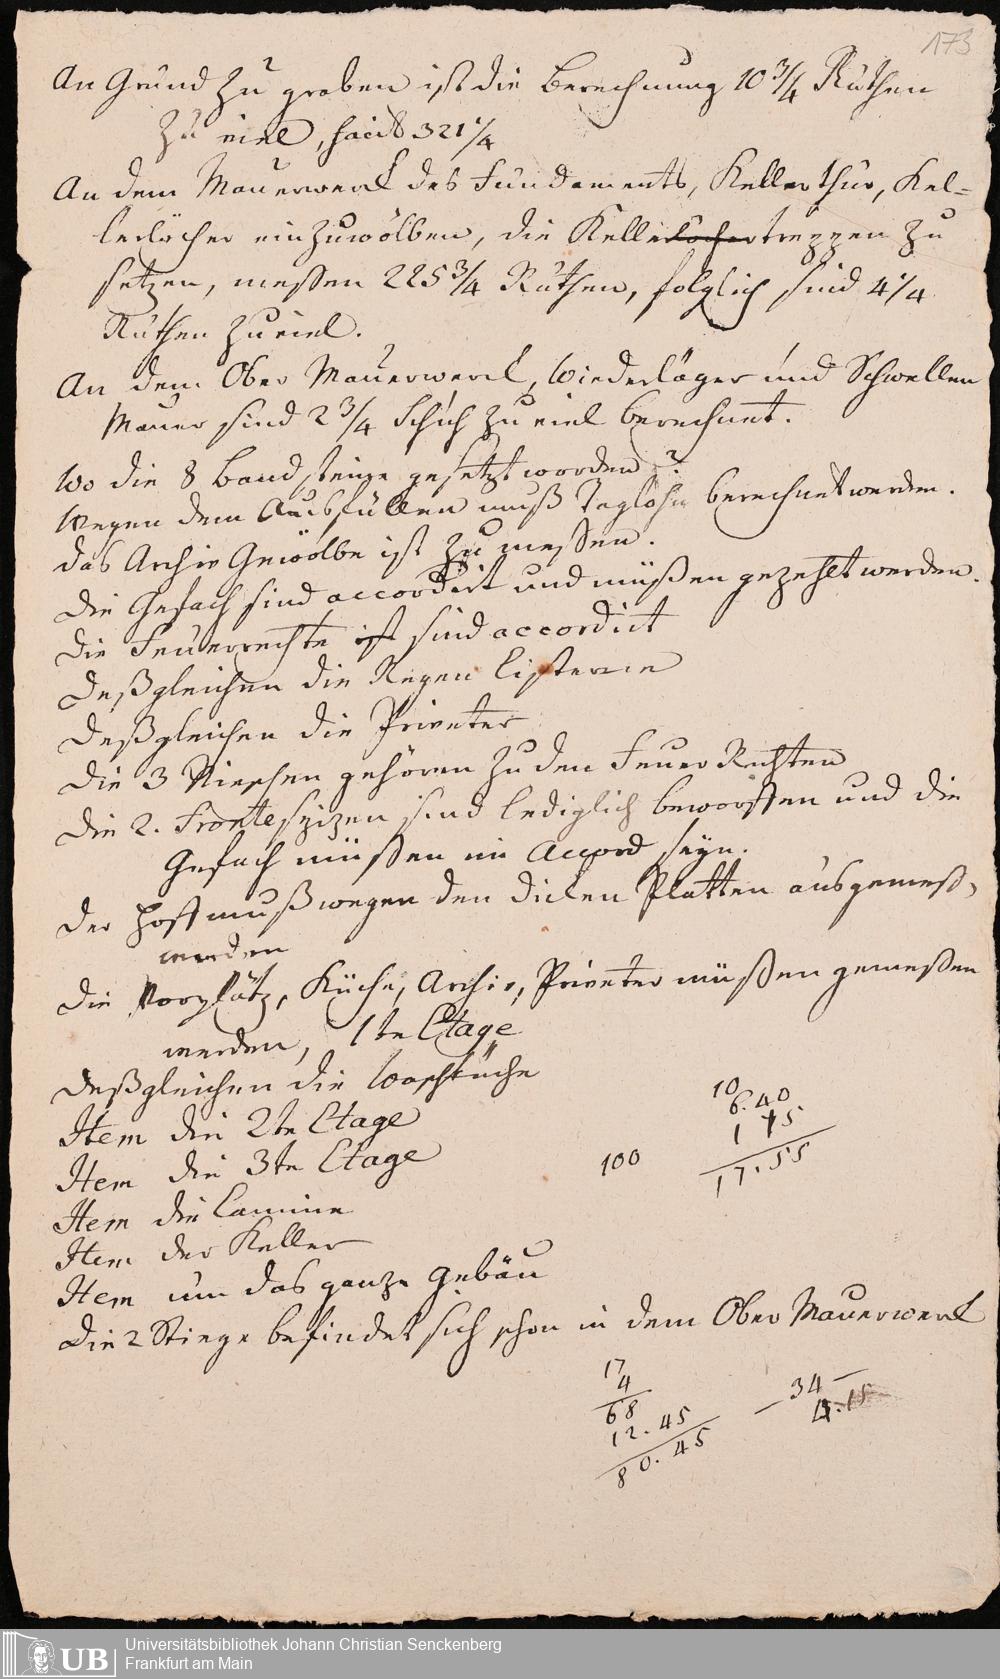 173
An Grund zu graben ist die Berechnung 10 3/4 Ruthen
zu viel, facit 321 1/4
An dem Mauerwerk des Fundaments, Kellerthür, Kel-
lerlöcher einzuwölben, die Kellerlöcher treppen zu
setzen, messen 225 3/4 Ruthen, folglich sind 4 1/4
Ruthen zuviel.
An dem Ober Mauerwerck, Wiederläger und Schwellen
Mauer sind 2 3/4 Schuh zu viel berechnet.
Wo die 8 Bandsteine gesetzt worden?
Wegen dem Ausfüllen muß Taglohn berechnet werden.
das Archiv Gewölbe ist zu messen.
die Gefach sind accordirt und müßen gezehlt werden.
die Feuerrechte ist sind accordirt
deßgleichen die Regen Cisterne
deßgleichen die Priveter
die 3 Nieschen gehören zu den Feuer Rechten
die 2. Frontespizen sind lediglich beworffen und die
Gefach müßen im Accord seyn.
der Hoff muß wegen den dicken Platten ausgemeß,
werden
die Vorplätz, Küche, Archiv, Priveter müßen gemeßen
werden, 1te Etage
deßgleichen die Waschküche
Item die 2te Etage
Item die 3te Etage
Item die Camine
Item der Keller
Item um das ganze Gebäu
die 2 Stiege befindet sich schon in dem Ober Mauerwerk
100
10
6.40
1 15
17.55
17
4
68
12.45
80.45
34 —
Universitätsbibliothek Johann Christian Senckenberg
Frankfurt am Main
UB